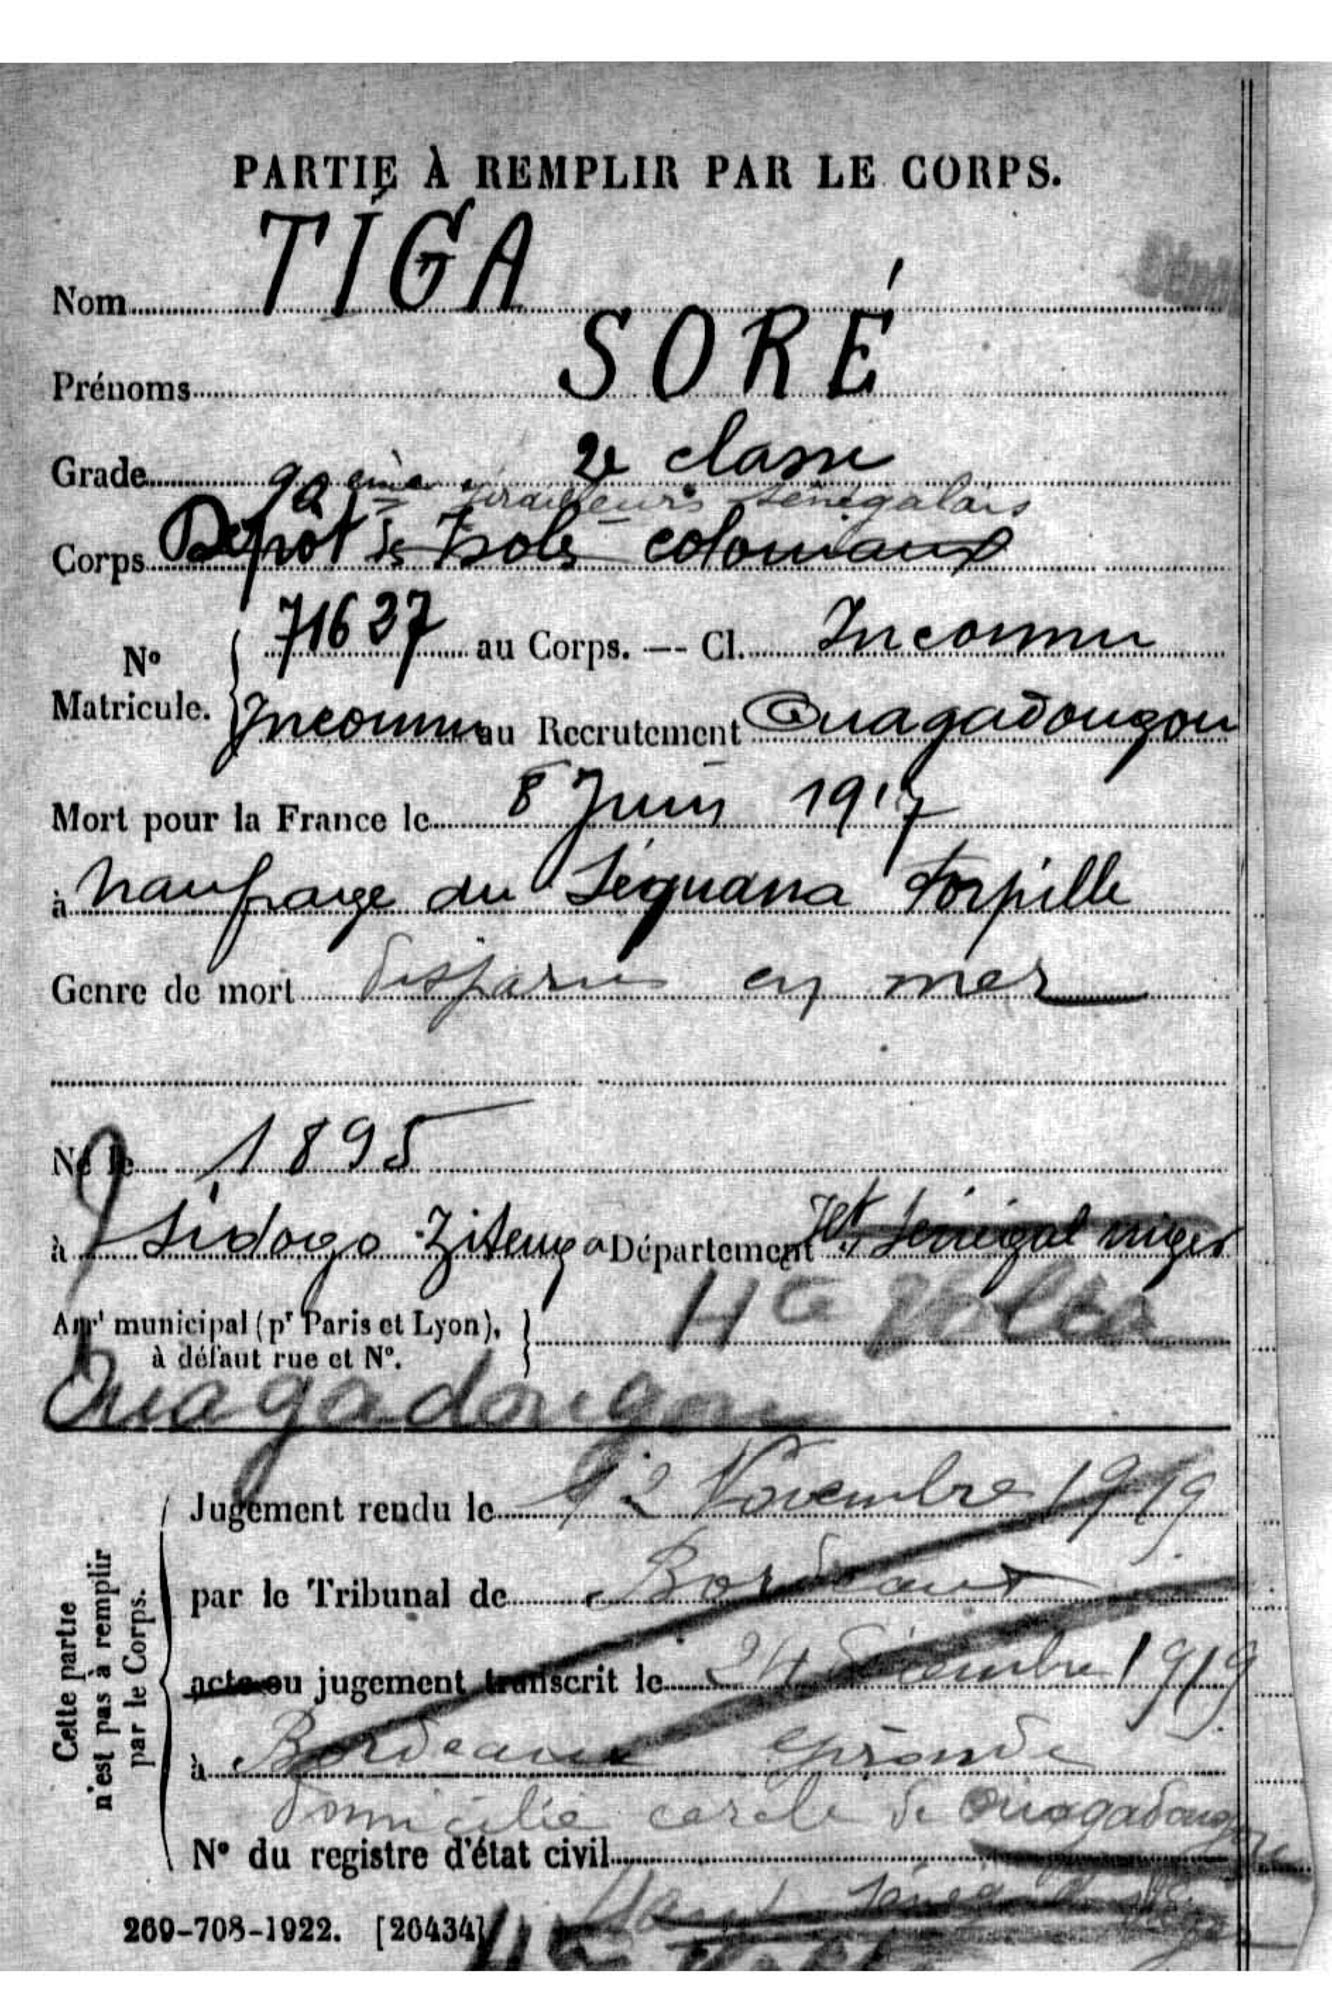 PARTIE À REMPLIR PAR LE CORPS.
Nom TIGA
Prénoms SORÉ
Grade 2e classe
90 ème tirailleurs sénégalais
Corps Dépôt des Isolés coloniaux
N° Matricule. 71637 au Corps. — Cl. Inconnu
Inconnu au Recrutement Ouagadougou
Mort pour la France le 8 Juin 1917
à naufrage du Séquana torpillé
Genre de mort disparu en mer
Né le 1895
à Sidogo Zitenga Département Ht Sénégal niger
Arrt municipal (pr Paris et Lyon), à défaut rue et N°. Hte Volta
Ouagadougou
Cette partie n'est pas à remplir par le Corps.
Jugement rendu le 12 Novembre 1919
par le Tribunal de Bordeaux
acte ou jugement transcrit le 24 Décembre 1919
à Bordeaux Gironde
domicilié cercle de Ouagadougou
N° du registre d'état civil
Haut Sénégal Niger
269-708-1922. [26434] Hte Volta